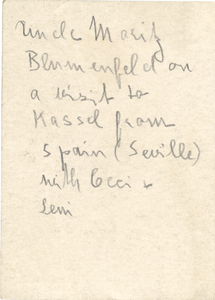 Uncle Moritz
Blumenfeld on
a visit to
Kassel from
Spain (Seville)
with Ceci +
Leni